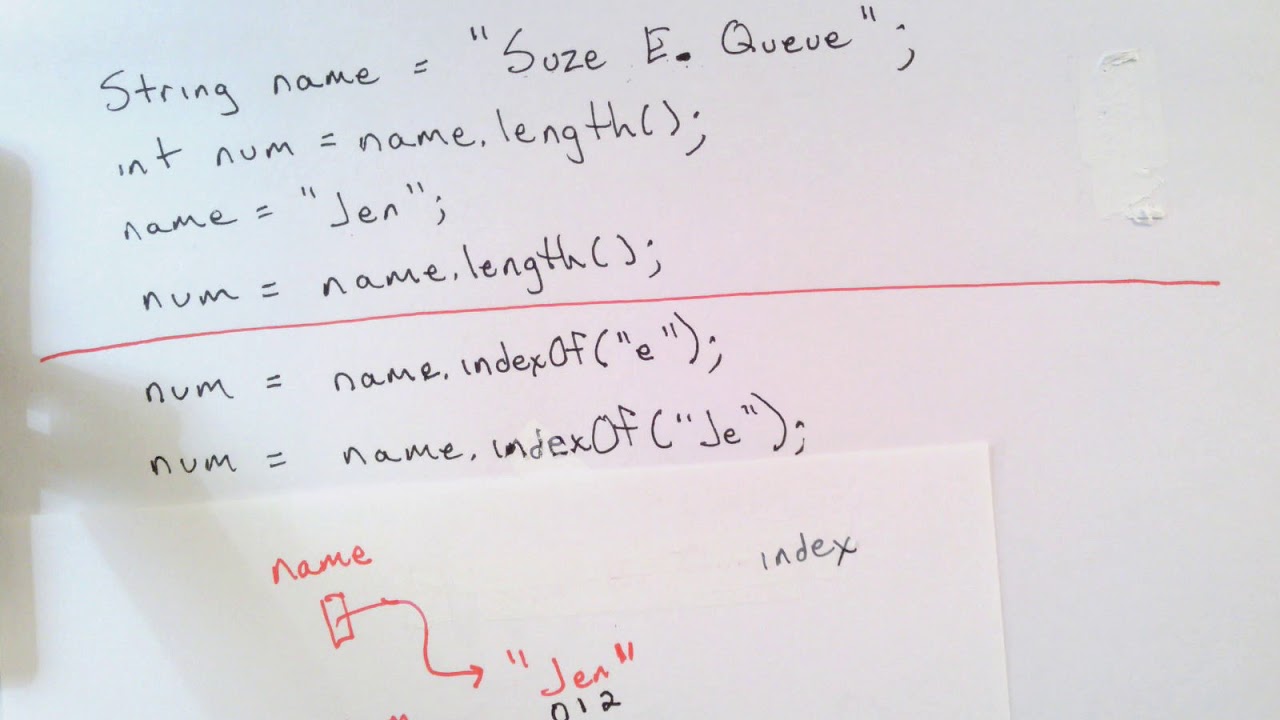 String name = "Suze E. Queue";
int num = name.length();
name = "Jen";
num = name.length();
num = name.indexOf("e");
num = name.indexOf("Je");
name
index
"Jen"
0 1 2